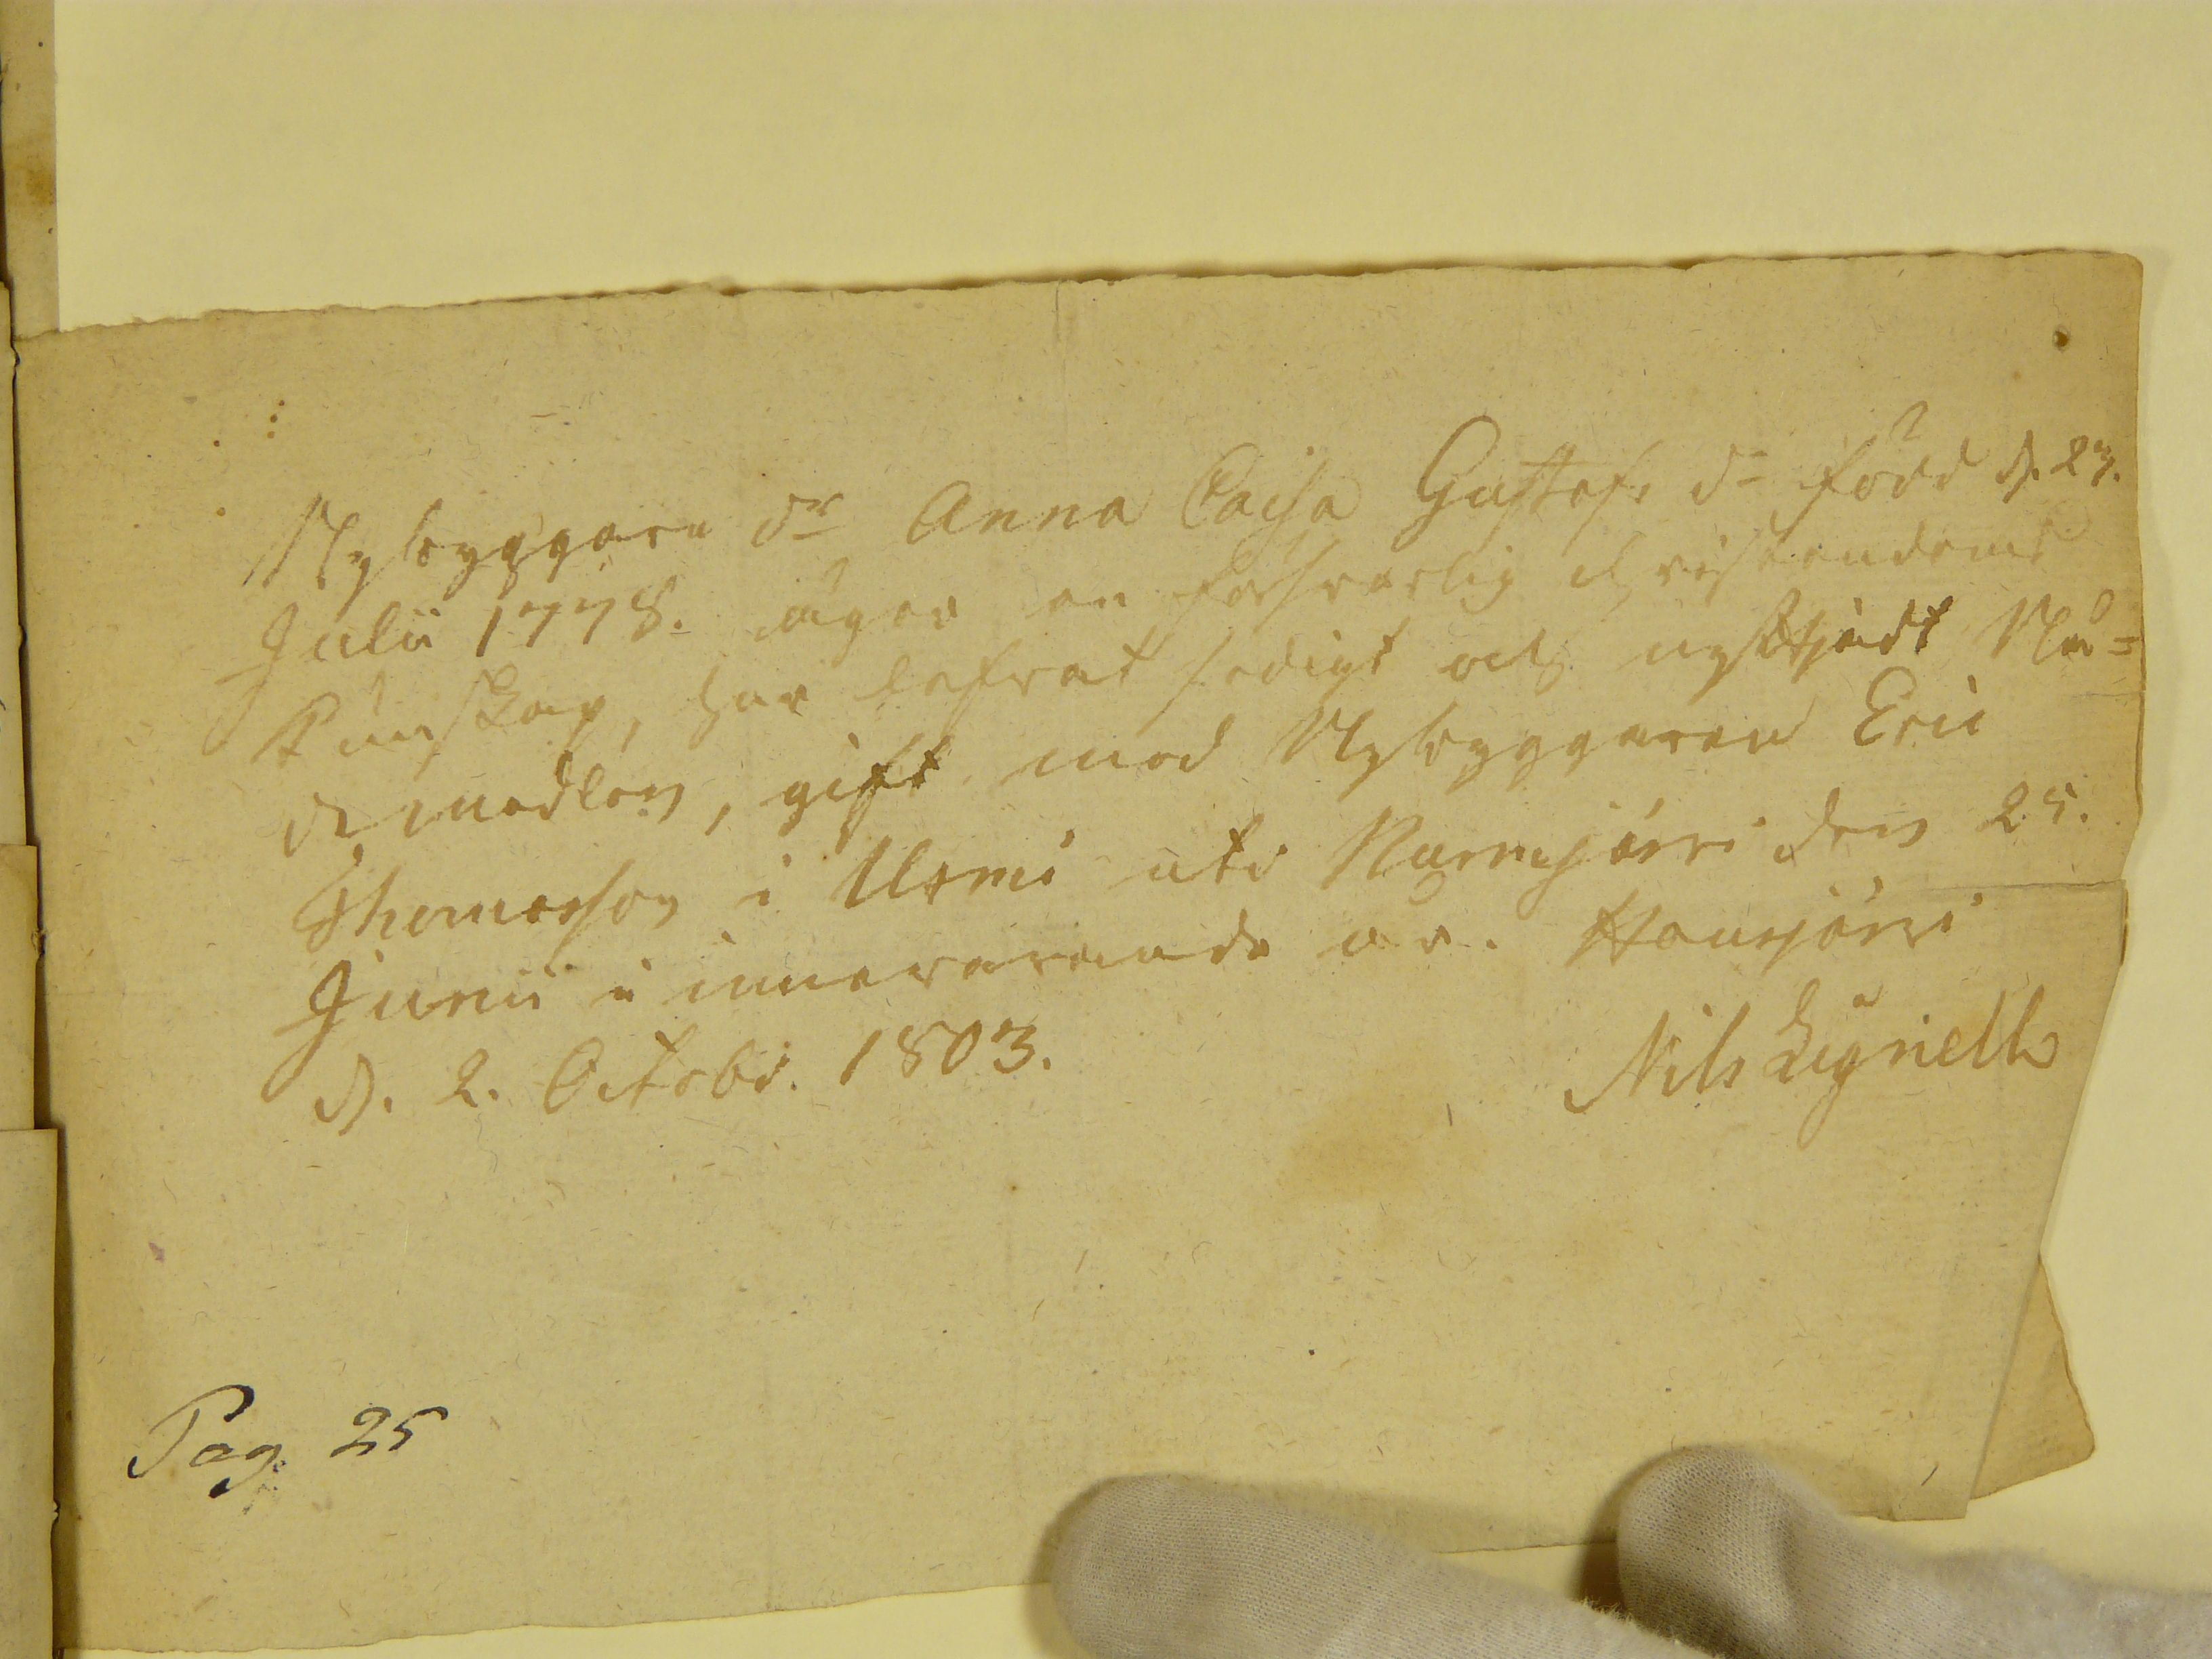 Nybyggare dr Anna Caisa Gustafs dr född d. 27.
Julii 1778. äger en försvarlig christendoms
kunskap, har lefvat sedigt och nyttjadt Nå=
demedlen, gift med Nybyggaren Eric
Thomasson i Urmi uti Nurmijärvi den 25.
Junii i innevarande år.
d. 2. Octobr. 1803.
Nils Lignell
Pag. 25